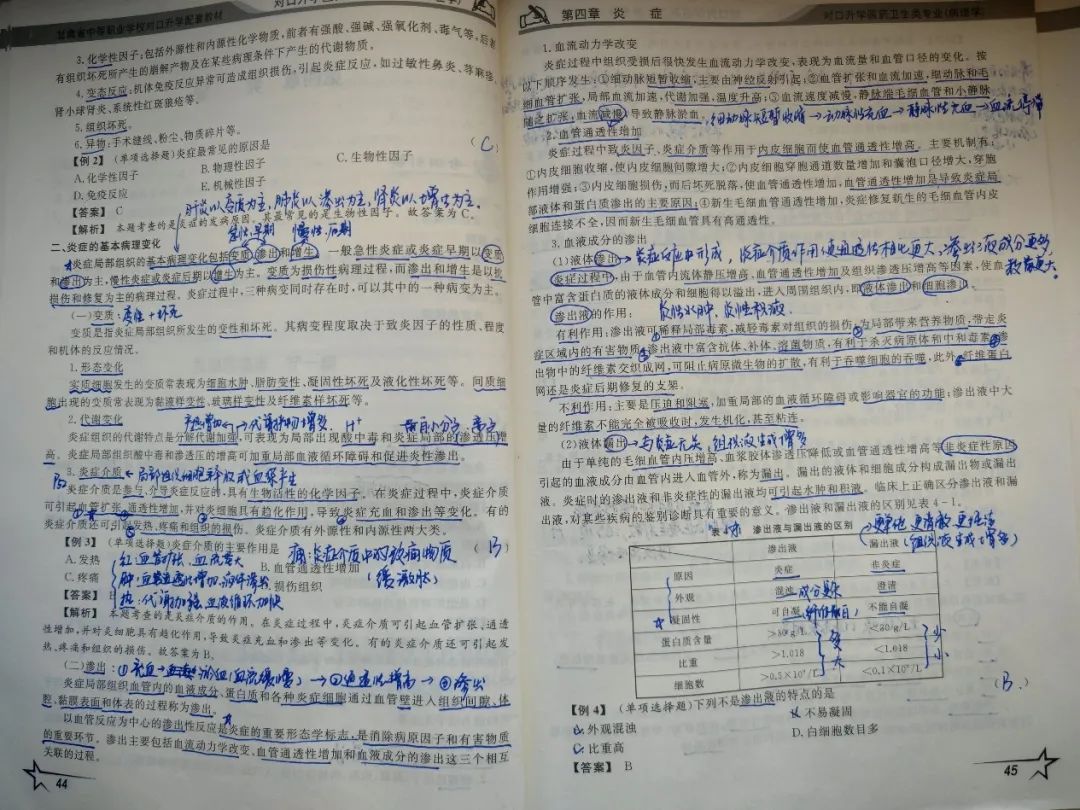 甘肃省中等职业学校对口升学配套教材
3. 化学性因子:包括外源性和内源性化学物质,前者有强酸、强碱、强氧化剂、毒气等,后者
有组织坏死所产生的崩解产物及在某些病理条件下产生的代谢物质。
4. 变态反应:机体免疫反应异常可造成组织损伤,引起炎症反应,如过敏性鼻炎、荨麻疹、
肾小球肾炎、系统性红斑狼疮等。
5. 组织坏死。
6. 异物:手术缝线、粉尘、物质碎片等。
【例 2】 (单项选择题)炎症最常见的原因是 ( C )
A. 化学性因子 B. 物理性因子 C. 生物性因子
D. 免疫反应 E. 机械性因子
【答案】 C
肝炎以变质为主,肺炎以渗出为主,肾炎以增生为主.
【解析】 本题考查的是炎症的发病原因。其最常见的是生物性因子。故答案为 C。
急性,早期 慢性,后期
二、炎症的基本病理变化
炎症局部组织的基本病理变化包括变质、渗出和增生。一般急性炎症或炎症早期以变质
和渗出为主,慢性炎症或炎症后期以增生为主。变质为损伤性病理过程,而渗出和增生是以抗
损伤和修复为主的病理过程。炎症过程中,三种病变同时存在时,可以其中的一种病变为主。
(一)变质:变性+坏死
变质是指炎症局部组织所发生的变性和坏死。其病变程度取决于致炎因子的性质、程度
和机体的反应情况。
1. 形态变化
实质细胞发生的变质常表现为细胞水肿、脂肪变性、凝固性坏死及液化性坏死等。间质细
胞出现的变质常表现为黏液样变性、玻璃样变性及纤维素样坏死等。
2. 代谢变化
炎症组织的代谢特点是分解代谢加强,可表现为局部出现酸中毒和炎症局部的渗透压增
高。炎症局部组织酸中毒和渗透压的增高可加重局部血液循环障碍和促进炎性渗出。
3. 炎症介质 ← 局部组织细胞释放或血浆产生
炎症介质是参与、介导炎症反应的,具有生物活性的化学因子。在炎症过程中,炎症介质
可引起血管扩张、通透性增加,并对炎细胞具有趋化作用,导致炎症充血和渗出等变化。有的
炎症介质还可引起发热、疼痛和组织的损伤。炎症介质有外源性和内源性两大类。
【例 3】 (单项选择题)炎症介质的主要作用是 ( B )
痛:炎症介质中的致痛物质
A. 发热 B. 血管通透性增加
红:血管扩张,血流量大
(缓激肽)
C. 疼痛 损伤组织
【答案】 B
热:代谢加强,血液循环加快
【解析】 本题考查的是炎症介质的作用。在炎症过程中,炎症介质可引起血管扩张、通透
性增加,并对炎细胞具有趋化作用,导致炎症充血和渗出等变化。有的炎症介质还可引起发
热、疼痛和组织的损伤。故答案为 B。
(二)渗出:
炎症局部组织血管内的血液成分、蛋白质和各种炎症细胞通过血管壁进入组织间隙、体
腔、黏膜表面和体表的过程称为渗出。
以血管反应为中心的渗出性反应是炎症的重要形态学标志,是消除病原因子和有害物质
的重要环节。渗出主要包括血流动力学改变、血管通透性增加和血液成分的渗出这三个相互
关联的过程。
44
第四章 炎 症
对口升学医药卫生类专业(病理学)
1. 血流动力学改变
炎症过程中组织受损后很快发生血流动力学改变,表现为血流量和血管口径的变化。按
以下顺序发生:①细动脉短暂收缩,主要由神经反射引起;②血管扩张和血流加速,细动脉和毛
细血管扩张,局部血流加速,代谢加强,温度升高;③血流速度减慢,静脉端毛细血管和小静脉
随之扩张,血流减慢,导致静脉淤血。
细动脉短暂收缩→动脉性充血→静脉性充血→血流停滞
2. 血管通透性增加
炎症过程中致炎因子、炎症介质等作用于内皮细胞而使血管通透性增高。主要机制有:
①内皮细胞收缩,使内皮细胞间隙增大;②内皮细胞穿胞通道数量增加和囊泡口径增大,穿胞
作用增强;③内皮细胞损伤,而后坏死脱落,使血管通透性增加,血管通透性增加是导致炎症局
部液体和蛋白质渗出的主要原因;④新生毛细血管高通透性,炎症修复新生的毛细血管内皮
细胞连接不全,因而新生毛细血管具有高通透性。
3. 血液成分的渗出
(1)液体渗出
炎症过程中,由于血管内流体静压增高、血管通透性增加及组织渗透压增高等因素,使血
管中富含蛋白质的液体成分和细胞得以溢出,进入周围组织内,即液体渗出和细胞渗出。
渗出液的作用: 炎性水肿、炎性积液.
有利作用:渗出液可稀释局部毒素,减轻毒素对组织的损伤,为局部带来营养物质,带走炎
症区域内的有害物质;渗出液中富含抗体、补体、溶菌物质,有利于杀灭病原体和中和毒素;渗
出物中的纤维素交织成网,可阻止病原微生物的扩散,有利于吞噬细胞的吞噬,此外,纤维蛋白
网还是炎症后期修复的支架。
不利作用:主要是压迫和阻塞,加重局部的血液循环障碍或影响器官的功能;渗出液中大
量的纤维素不能完全被吸收时,发生机化,甚至粘连。
(2)液体漏出→与炎症无关,组织液生成增多
由于单纯的毛细血管内压增高、血浆胶体渗透压降低或血管通透性增高等非炎症性原因
引起的血液成分由血管内进入血管外,称为漏出。漏出的液体和细胞成分构成漏出物或漏出
液。炎症时的渗出液和非炎症性的漏出液均可引起水肿和积液。临床上正确区分渗出液和漏
出液,对某些疾病的鉴别诊断具有重要的意义。渗出液和漏出液的区别见表 4-1。
渗出液与漏出液的区别
渗出液 漏出液
(组织液生成增多)
原因 炎症 非炎症
外观 混浊 澄清
凝固性 可自凝 不能自凝
蛋白质含量 >30g/L <30g/L
比重 >1.018 <1.018
细胞数 >0.5×10⁹/L <0.1×10⁹/L
多 大 少 小
【例 4】 (单项选择题)下列不是渗出液的特点的是 ( B )
A. 外观混浊 B. 不易凝固
C. 比重高 D. 白细胞数目多
【答案】 B
45